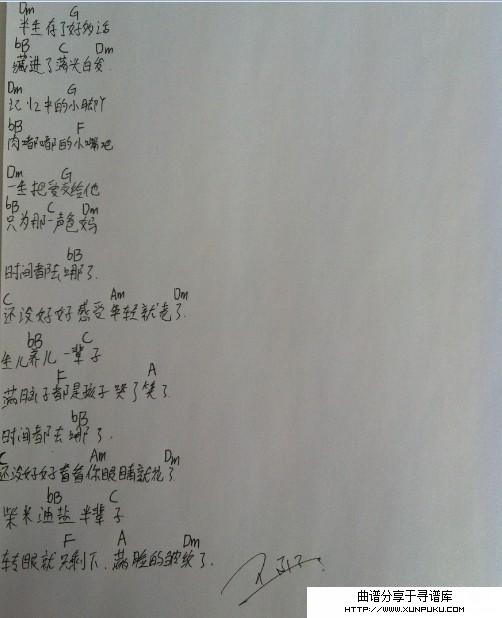 Dm G
半生存了好多话
bB C Dm
藏进了满头白发
Dm G
记忆中的小脚丫
bB F
肉嘟嘟的小嘴吧
Dm G
一生把爱交给他
bB C Dm
只为那一声爸妈
bB
时间都去哪了
C Am Dm
还没好好感受年轻就老了
bB C
生儿养儿一辈子
F A
满脑子都是孩子哭了笑了
bB
时间都去哪了
C Am Dm
还没好好看看你眼睛就花了
bB C
柴米油盐半辈子
F A Dm
转眼就只剩下满脸的皱纹了
曲谱分享于寻谱库
HTTP://WWW.XUNPUKU.COM